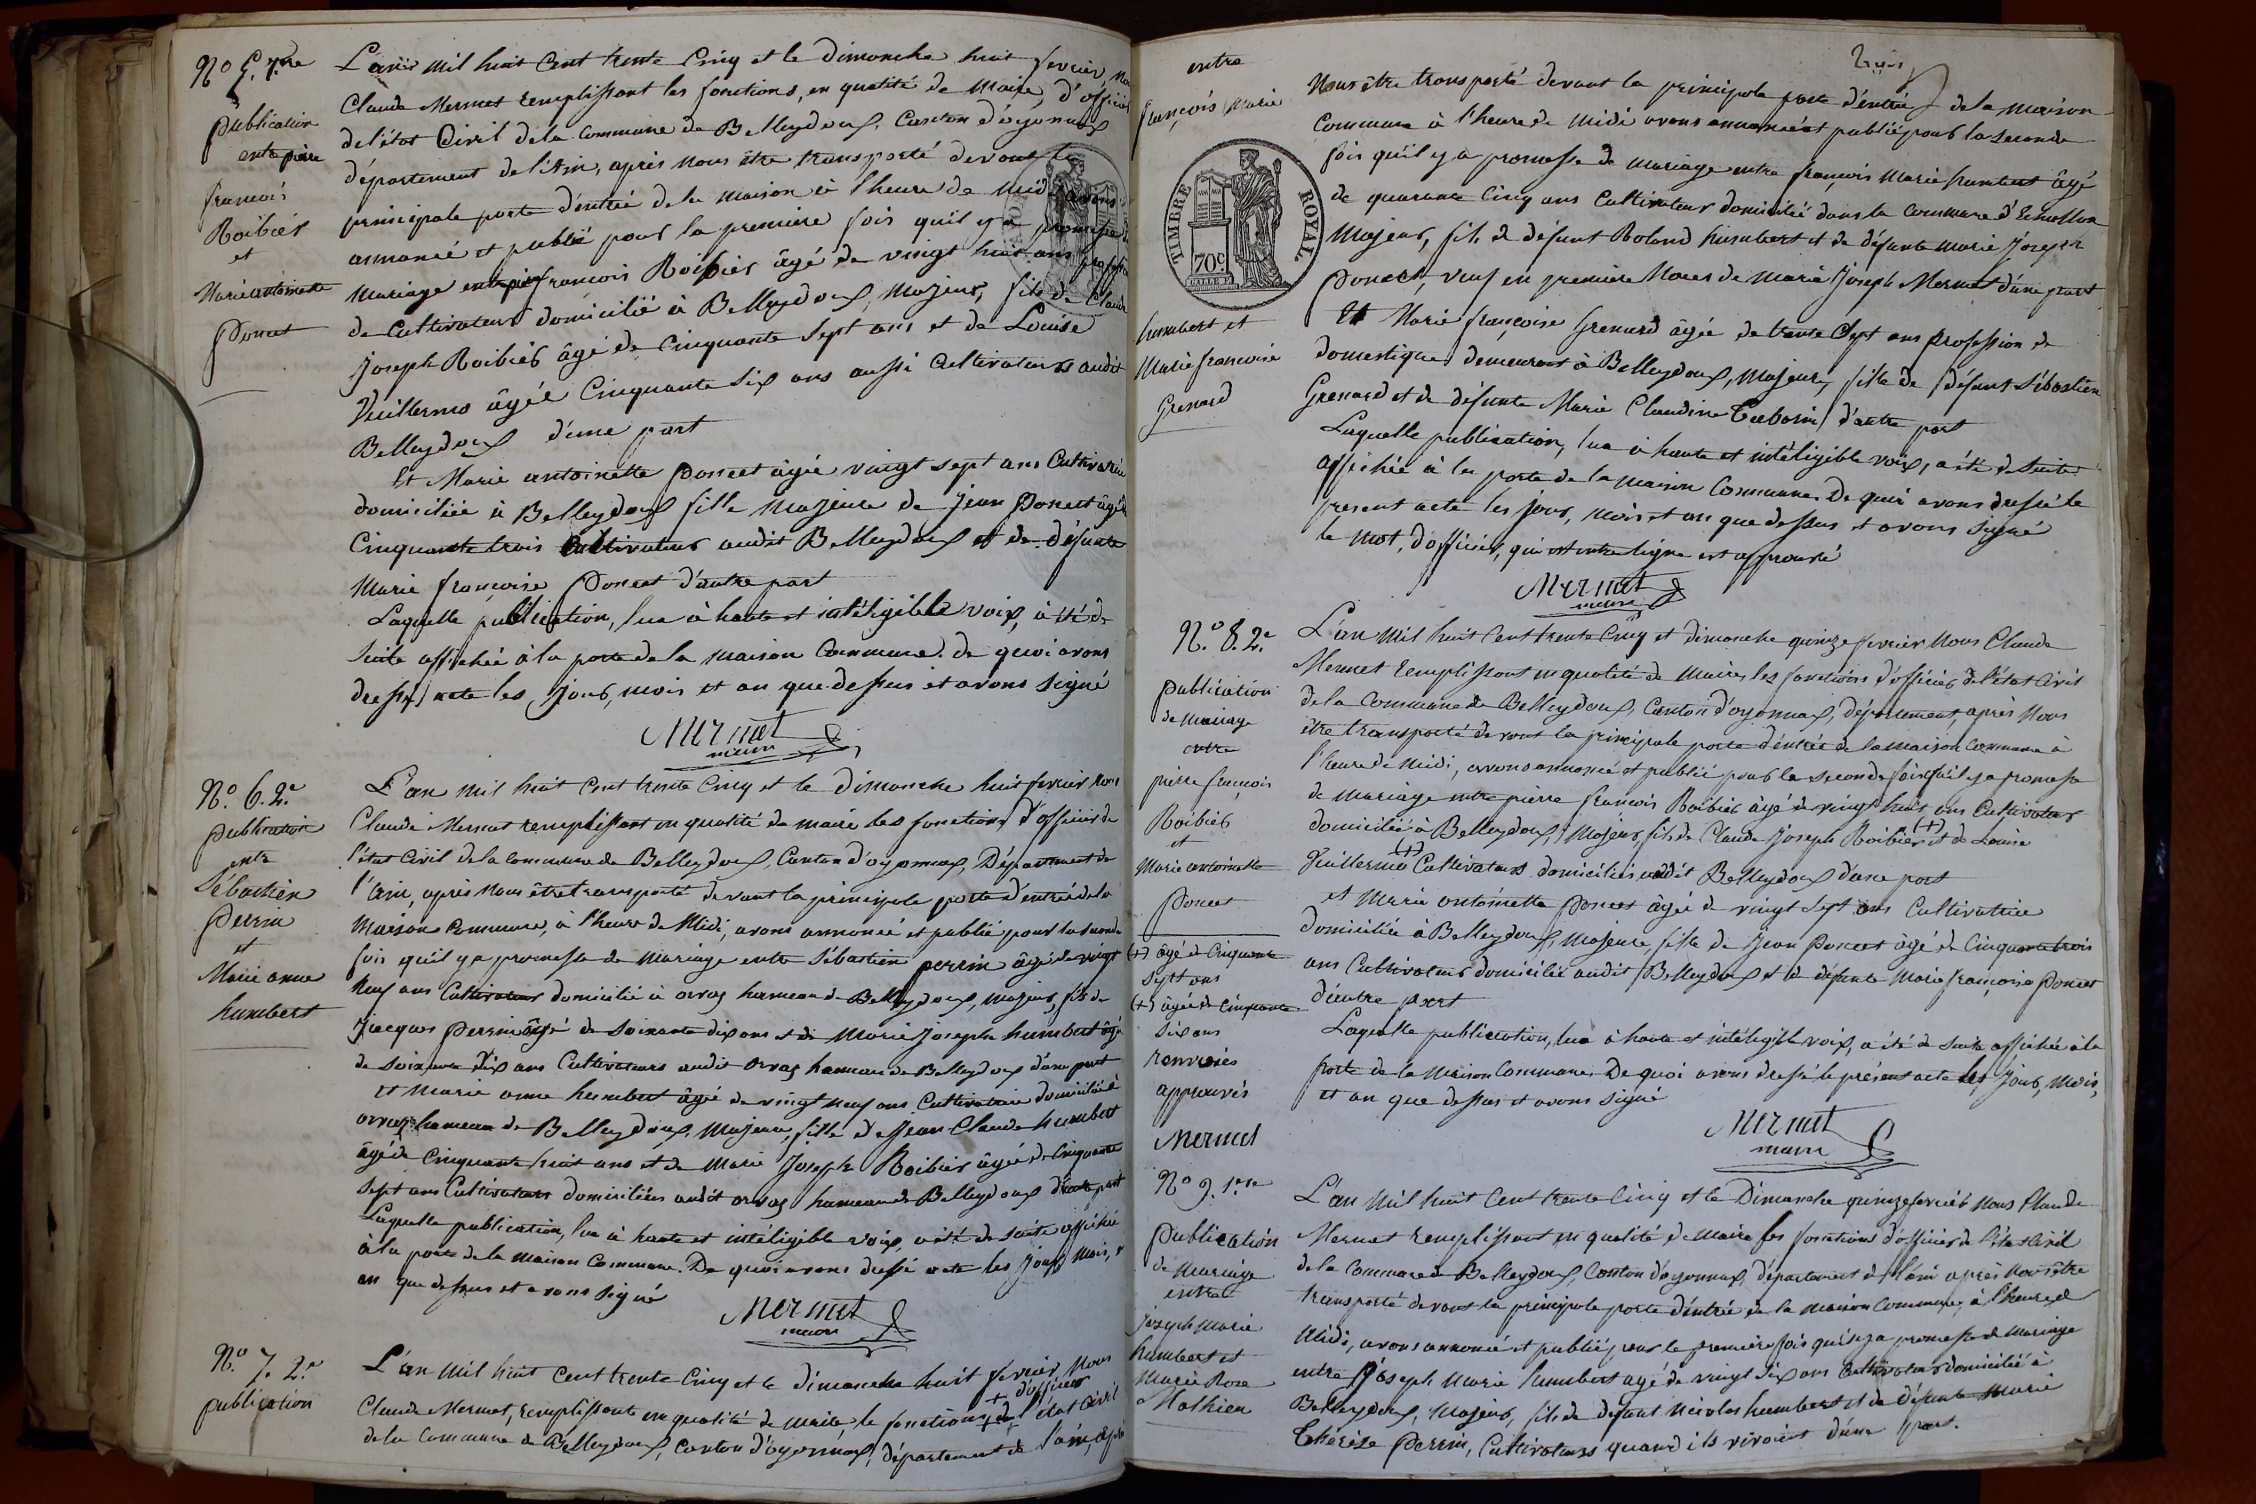 No 5. 1.re
publication
entre pierre
françois
Roibier
et
Marie antoinette
Poncet
L'an mil huit Cent trente Cinq et le dimanche huit fevrier, nous
Claude Mermet remplissant les fonctions, en qualité de Maire, d'officier
de l'état Civil de la Commune de Belleydoux, Canton d'oyonnax
département de l'Ain, après nous être transporté devant la
principale porte d'entrée de la maison à l'heure de midi avons
annoncé et publié pour la premiere fois qu'il y a promesse de
mariage entre pierre françois Roibier âgé de vingt huit ans profession
de Cultivateur domicilié à Belleydoux, Majeur, fils de Claude
Joseph Roibier âgé de Cinquante Sept ans et de Louise
Vuillermo âgée Cinquante Six ans aussi Cultivateurs audit
Belleydoux d'une part
Et Marie antoinette Poncet âgée vingt sept ans Cultivatrice
domiciliée à Belleydoux fille Majeure de Jean Poncet âgé de
Cinquante trois Cultivateur audit Belleydoux et de défunte
Marie françoise Poncet d'autre part
Laquelle publication, lue à haute et intéligible voix, à été de
Suite affichée à la porte de la maison Commune. de quoi avons
dressé acte les Jour, mois et an que dessus et avons Signé
Mermet
maire
No. 6. 2.e
publication
entre
Sébastien
Perrin
et
Marie anne
humbert
L'an mil huit Cent trente Cinq et le dimanche huit fevrier nous
Claude Mermet remplissant en qualité de maire les fonctions d'officier de
l'état Civil de la Commune de Belleydoux, Canton d'oyonnax, Département de
l'Ain, après nous être transporté devant la principale porte d'entrée de la
Maison Commune, à l'heure de Midi, avons annoncé et publié pour la seconde
fois qu'il y a promesse de mariage entre Sébastien perrin âgé de vingt
neuf ans Cultivateur domicilié à orvaz hameau de Belleydoux, majeur, fils de
Jacques Perrin âgé de Soixante dix ans et de Marie Joseph humbert âgée
de Soixante dix ans Cultivateurs audit orvaz hameau de Belleydoux d'une part
et Marie anne humbert âgée de vingt neuf ans Cultivatrice domiciliée à
orvaz hameau de Belleydoux, Majeure, fille de Jean Claude humbert
âgé de Cinquante huit ans et de Marie Joseph Roibier âgée de Cinquante
Sept ans Cultivateurs domiciliés audit orvaz hameau de Belleydoux d'autre part
Laquelle publication, lue à haute et intéligible voix, a été de suite affichée
à la porte de la maison Commune. De quoi avons dressé acte les Jour, Mois, et
an que dessus et avons Signé
Mermet
maire
No. 7. 2.e
publication
L'an mil huit Cent trente Cinq et le dimanche huit fevrier, Nous
+ d'officier
Claude Mermet, remplissant en qualité de maire, le fonctions de l'état Civil
de la Commune de Belleydoux, canton d'oyonnax, département de l'ain, après
entre
françois Marie
TIMBRE ROYAL
70c
humbert et
Marie francoise
Grenard
Nous être transporté devant la principale porte d'entrée de la maison
Commune à l'heure de midi avons annoncé et publié pour la Seconde
fois qu'il y a promesse de mariage entre françois Marie humbert âgé
de quarante Cinq ans Cultivateur domicilié dans la Commune d'Echallon
Majeur, fils de défunt Roland humbert et de défunte Marie Joseph
Poncet, veuf en première Noces de Marie Joseph Mermet d'une part
Et Marie françoise Grenard âgée de trente Sept ans profession de
domestique demeurant à Belleydoux, Majeure, fille de défunt Sébastien
Grenard et de défunte Marie Claudine Taborin d'autre part
Laquelle publication, lue à haute et intéligible voix, a été de Suite
affichée à la porte de la maison Commune. De quoi avons dressé le
présent acte les Jour, mois et an que dessus et avons Signé
le mot, d'officier, qui est entre ligne est approuvé
Mermet
maire
No. 8. 2.e
publication
de Mariage
entre
pierre françois
Roibier
et
Marie antoinette
Poncet
(+) âgé de Cinquante
Sept ans
(+) âgée de Cinquante
Six ans
renvoies
approuvés
Mermet
L'an mil huit Cent trente Cinq et dimanche quinze fevrier Nous Claude
Mermet remplissant en qualité de Maire les fonctions d'officier de l'état Civil
de la Commune de Belleydoux, Canton d'oyonnax, Département, après Nous
être transporté devant la principale porte d'entrée de la maison Commune à
l'heure de Midi, avons annoncé et publié pour la seconde fois qu'il y a promesse
de mariage entre pierre françois Roibier âgé de vingt huit ans Cultivateur
domicilié à Belleydoux, Majeur, fils de Claude Joseph Roibier (+) et de Louise
Vuillermo (+) Cultivateurs domiciliés audit Belleydoux d'une part
et Marie antoinette Poncet âgée de vingt Sept ans Cultivatrice
domiciliée à Belleydoux, Majeure, fille de Jean Poncet âgé de Cinquante trois
ans Cultivateur domicilié audit Belleydoux et de défunte Marie françoise Poncet
d'autre part
Laquelle publication, lue à haute et intéligible voix, a été de suite affichée à la
porte de la Maison Commune. De quoi avons dressé le présent acte les Jour, Mois,
et an que dessus et avons Signé
Mermet
maire
No 9. 1.re
publication
de Mariage
entre
joseph marie
humbert et
Marie Rose
Mathieu
L'an mil huit Cent trente Cinq et le Dimanche quinze fevrier Nous Claude
Mermet remplissant en qualité de Maire les fonctions d'officier de l'état Civil
de la Commune de Belleydoux, Canton d'oyonnax, département de l'ain après Nous être
transporté devant la principale porte d'entrée de la maison Commune, à l'heure de
Midi, avons annoncé et publié pour le première fois qu'il y a promesse de Mariage
entre Joseph Marie humbert agé de vingt Six ans Cultivateur domicilié à
Belleydoux, Majeur, fils de defunt Nicolas humbert et de défunte Marie
Thérèse Perrin, Cultivateurs quand ils vivoient d'une part.